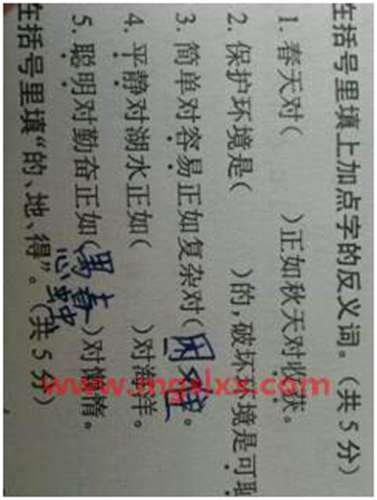 括号里填上加点字的反义词。(共5分)
1. 春天对(　　)正如秋天对收获。
2. 保护环境是(　　)的,破坏环境是可耻
3. 简单对容易正如复杂对(困难
4. 平静对湖水正如(　　)对海洋。
5. 聪明对勤奋正如(愚蠢)对懒惰。
括号里填“的、地、得”。(共5分)